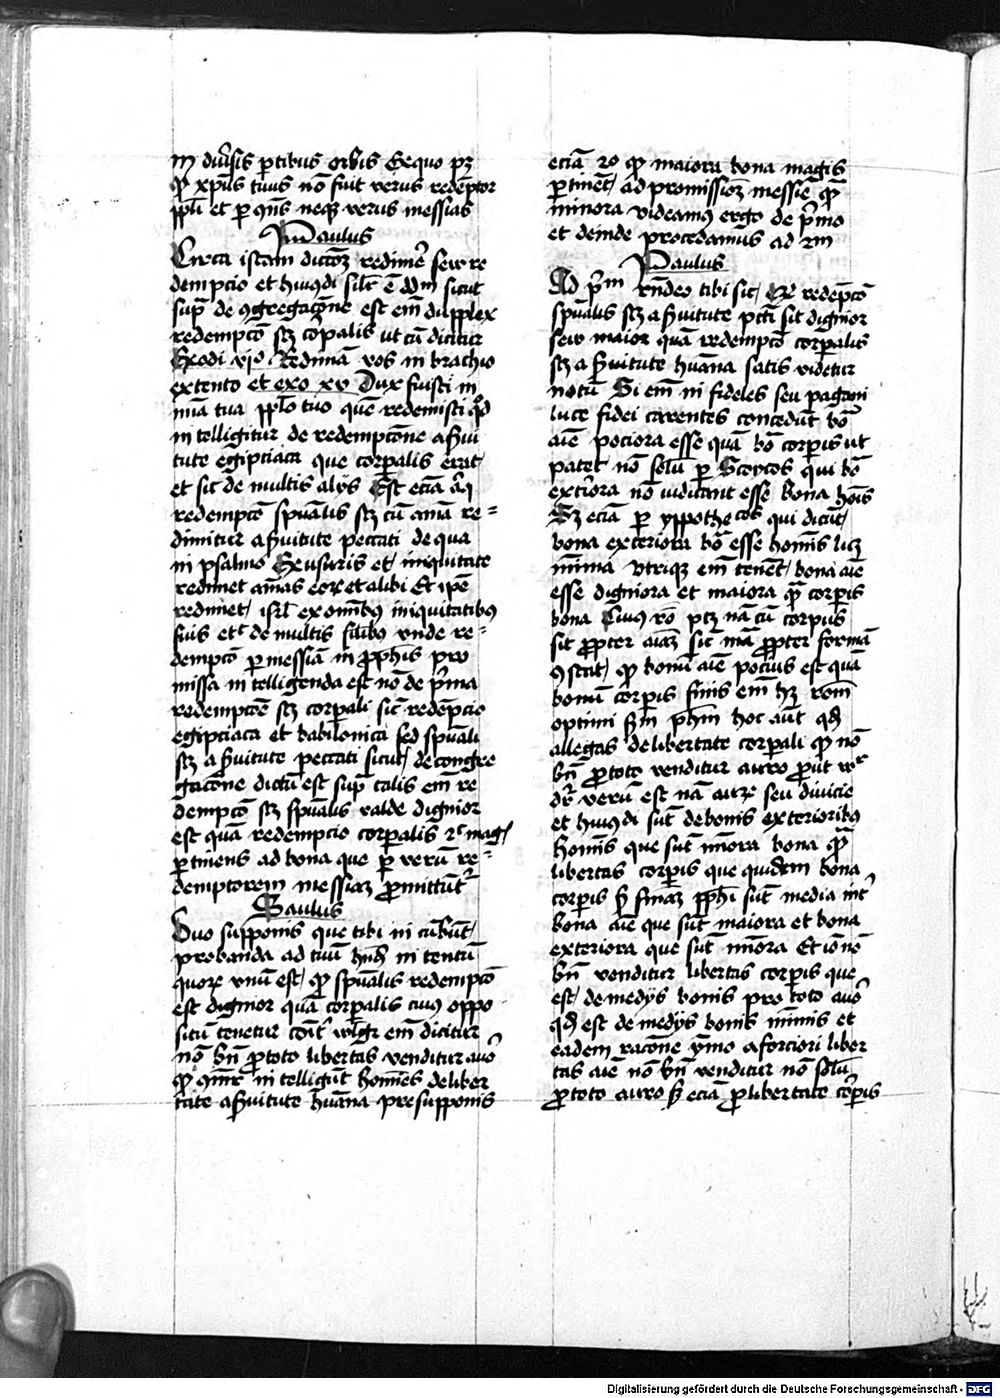 in diu̾sis ꝑtibus orbis Ex quo pꝫ
ꝙ xp̄us tuus nō fuit verus redēptor
ppłi et ꝑ ꝯn̄s neqꝫ verus messias
Paulus
Circa istam dictōꝫ redime̾ seu re
dempcio et huiꝯdi silr̄ ē dd̄m sicut
sup̄ de ꝯgregacōne est em̄ dupplex
redempcō scꝫ corꝑalis ut cū dicitur
Exodi vjo Redimā vos in brachio
extento et exo xv Dux fuisti in
mīa tua ppl̄o tuo quē redemisti qd̄
in telligitur de redempcōne a s̄ui
tute egipciaca que corꝑalis erat
et sic de multis alijs Est eciā alia
redempcō spūalis scꝫ cū aīa re=
dimitur a s̄uitute peccati de qua
in psalmo Ex usuris et iniquitate
redimet aīas eorꝝ et alibi Et ip̄e
redimet isrl̄ ex om̄ibꝰ iniquitatibꝰ
suis etc̄ de multis silibꝰ vnde re=
dempcō ꝑ messiā in ꝓphīs pro
missa in telligenda est nō de p̄ma
redempcōe scꝫ corꝑali sic̄ redēpcio
egipciaca et babilonica sed spūali
scꝫ a s̄uitute peccati sicut de congre
gacōne dictū est sup̄ talis em̄ re
dempcō scꝫ spūalis valde dignior
est quā redempcio corꝑalis et mag̾
ꝑtinens ad bona que ꝑ verū re=
demptorem messiaꝫ ꝓmittūt̾
Saulus
Duo supponis que tibi in cūbūt
probanda ad tuū hn̄dū in tentū
quoꝝ vnū est ꝙ spūalis redempcō
est dignior quā corꝑalis cuiꝰ oppo
situ tenetur cōit̾ wlgr̄ em̄ dicitur
nō bn̄ ꝓ toto libertas venditur auo̾
ꝙ ꝯmūr̄ in telligūt homīes de liber
tate a s̄uitute hūana presupponis
eciā 2o ꝙ maiora bona magis
ꝑtinēt ad promissioꝫ messie ꝙ
minora videamꝰ ergo de p̄mo
et deinde procedamus ad 2m
Paulus
Ad p̄m Rn̄deo tibi sic redēpcō
spūalis scꝫ a s̄uitute pcti sit dignior
seu maior quā redempcō corꝑalis
scꝫ a s̄uitute hūana satis videtur
notū Si em̄ in fideles seu pagani
luce fidei carentes concedūt bō
aīe pociora esse quā bō corꝑis ut
patet nō solū ꝑ Stoycos qui bō
exteriora nō iudicant esse bona hoīs
Sꝫ eciā ꝑ yppotheticos qui dicūt
bona exteriora bō esse homīs licꝫ
mīma vtriqꝫ em̄ tenēt bona aīe
esse digniora et maiora ꝙ corꝑis
bona Cuiꝰ rō ptꝫ nā cū corpus
sit ꝓpter aīaꝫ sic̄ mā ꝓpter formā
ꝯstat ꝙ bonū aīe pociꝰ est quā
bonū corꝑis finis em̄ hꝫ rōem
optimi s̄m phm̄ hoc aūt qd̄
allegas de libertate corꝑali ꝙ nō
bn̄ ꝓ toto venditur auro ꝓut
dr̄ verū est nā aurꝫ seu diuicie
et huiꝯdi sūt de bonis exterioribꝰ
homīs que sūt mīora bona ꝙ
libertas corꝑis que quidem bona
corꝑis s̄m phm̄ sūt media int̾
bona aīe que sūt maiora et bona
exteriora que sūt mīora Et iō nō
bn̄ venditur libertas corꝑis que
est de medijs bonis pro toto auo̾
qd̄ est de medijs bonis mīmis et
eadem racōne ymo a forciori liber
tas aīe nō bn̄ venditur nō solū
ꝓ toto auro sꝫ eciā ꝓ libertate corꝑis
Digitalisierung gefördert durch die Deutsche Forschungsgemeinschaft - DFG